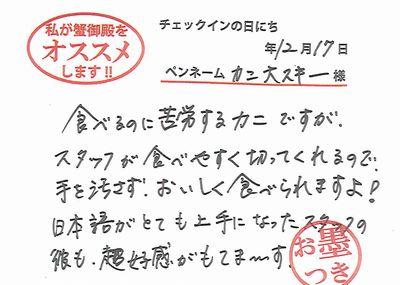 私が蟹御殿を
オススメ
します!!
チェックインの日にち
年12月17日
ペンネーム カニ大スキー 様
食べるのに苦労するカニですが、
スタッフが食べやすく切ってくれるので、
手を汚さず、おいしく食べられますよ!
日本語がとても上手になったスタッフの
彼も、超好感がもてまーす。
お墨
つき